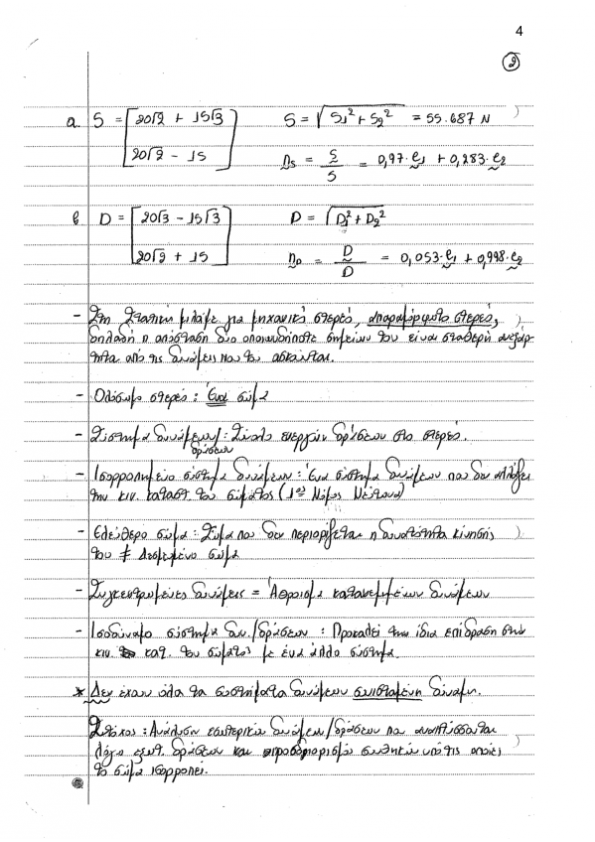 4
2
a S = [20√2 + 15√3 S = √S₁² + S₂² = 55.687 N
20√2 - 15] n_s = S/S = 0,97·e₁ + 0,283·e₂
b D = [20√3 - 15√3 D = √D₁² + D₂²
20√2 + 15] n_D = D/D = 0,053·e₁ + 0,998·e₂
- Στη Στατική μιλάμε για μηχανικές στερεό, απαραμόρφωτα στερεό,
δηλαδή η απόσταση δύο οποιωνδήποτε σημείων του είναι σταθερή ανεξάρ-
τητα από τις δυνάμεις που του ασκούνται.
- Ολόσωμο στερεό: Ένα σώμα
- Σύστημα δυνάμεων/: Σύνολο ενεργών δράσεων στο στερεό.
δράσεων
- Ισορροπημένο σύστημα δυνάμεων: Ένα σύστημα δυνάμεων που δεν αλλάζει
την κιν. κατάστ. του σώματος (1ος Νόμος Νεύτωνα)
- Ελεύθερο σώμα: Σώμα που δεν περιορίζεται η δυνατότητα κίνησής
του ≠ Δεσμευμένο σώμα
- Συγκεντρωμένες δυνάμεις = Άθροισμα κατανεμημένων δυνάμεων
- Ισοδύναμο σύστημα δυν./δράσεων: Προκαλεί την ίδια επίδραση στην
κιν. κατ. του σώματος με ένα άλλο σύστημα.
* Δεν έχουν όλα τα συστήματα δυνάμεων συνισταμένη δύναμη.
Στόχος: Ανάλυση εσωτερικών δυνάμεων/δράσεων που αναπτύσσονται
λόγω εξωτ. δράσεων και προσδιορισμός συνθηκών υπό τις οποίες
το σώμα ισορροπεί.